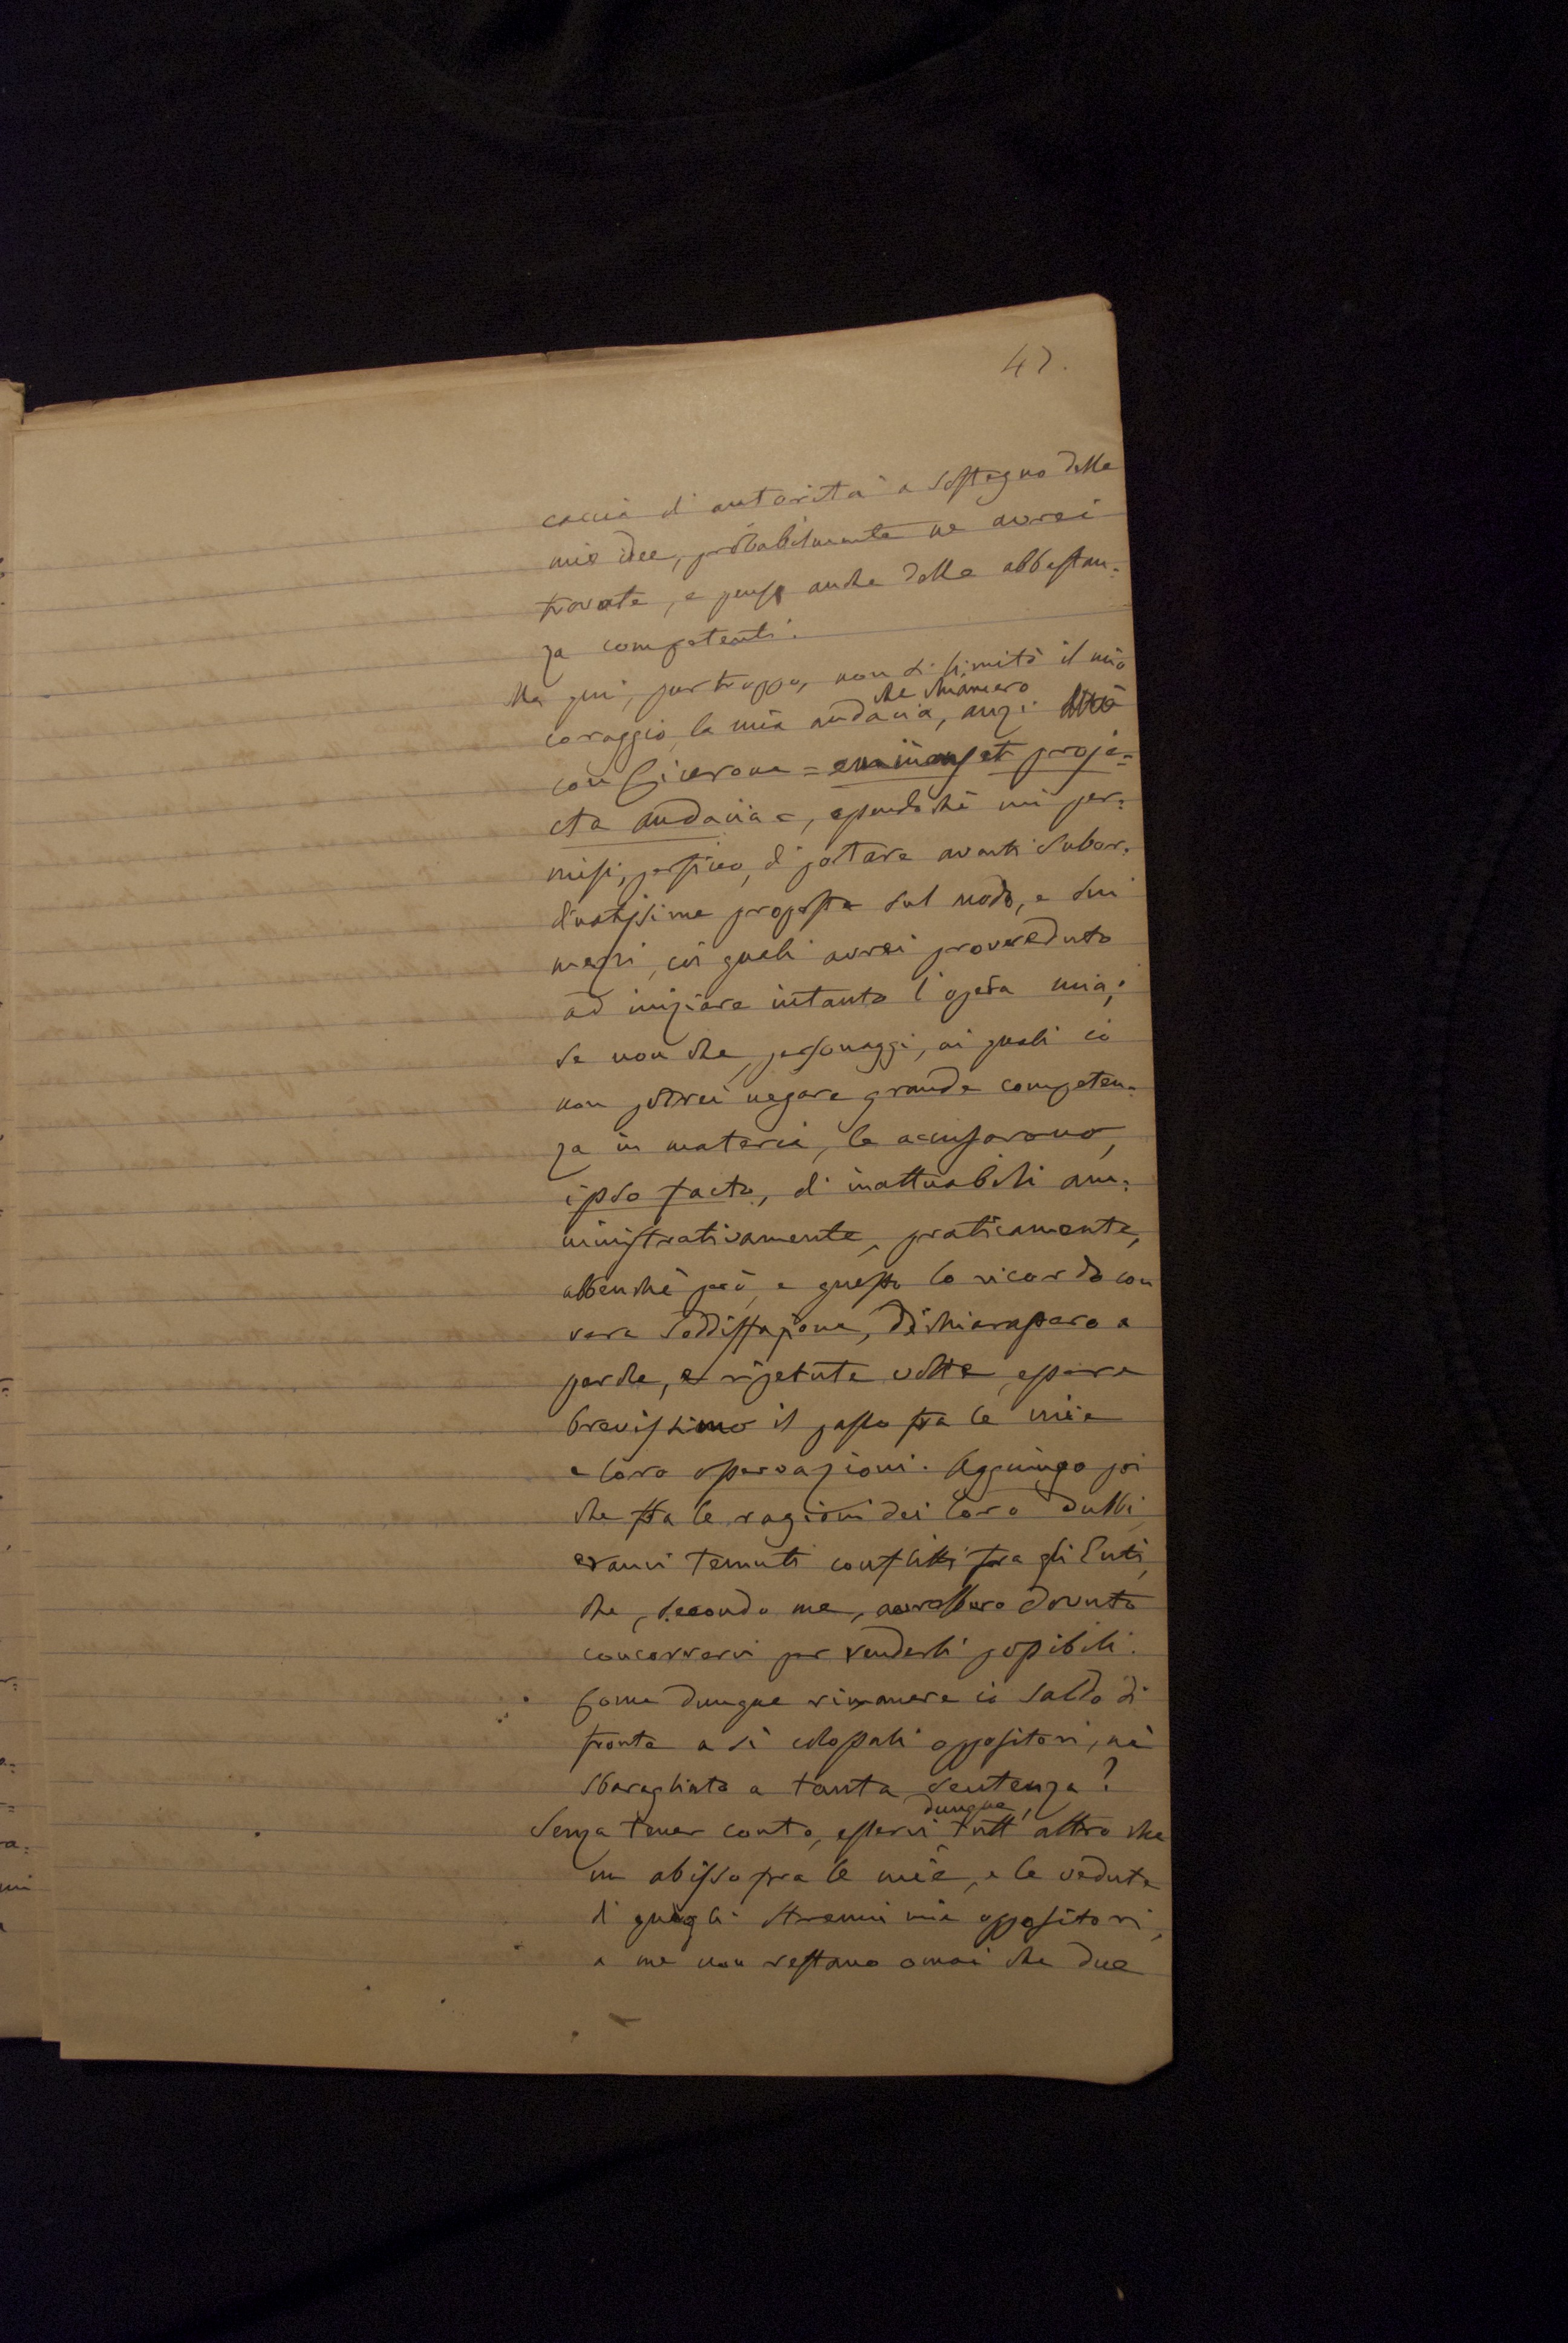 47.
caccia di autorità a sostegno delle
mie idee, probabilmente ne avrei
trovate, e penso anche delle abbastan=
za competenti.
Ma qui, pur troppo, non si limitò il mio
che chiamerò
coraggio, la mia audacia, anzi
con Cicerone = eminens et proje=
cta audacia =, epperocchè mi per=
misi, persino, di portare avanti subor=
dinatissime proposte sul modo, e sui
mezzi, coi quali avrei provveduto
ad iniziare intanto l'opera mia;
se non che, personaggi, ai quali io
non potrei negare grande competen=
za in materia, le accusarono,
ipso facto, di inattuabili am=
ministrativamente, praticamente,
abbenchè però, e questo lo ricordo con
vera soddisfazione, dichiarassero a
parole, e ripetute volte, essere
brevissimo il passo fra le mie
e loro osservazioni. Aggiungo poi
che fra le ragioni dei loro dubbi,
eranvi temuti conflitti fra gli Enti,
che, secondo me, avrebbero dovuto
concorrervi per renderli possibili.
Come dunque rimanere io saldo di
fronte a sì colossali oppositori, nè
sbaragliato a tanta sentenza?
dunque,
Senza tener conto, esservi tutt'altro che
un abisso fra le mie, e le vedute
di quegli strenui miei oppositori,
a me non restano omai che due